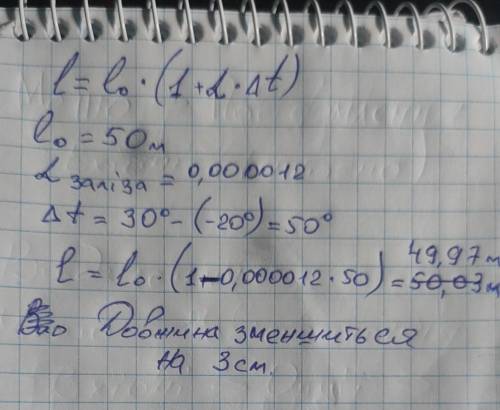 l = l₀ · (1 + α · Δt)
l₀ = 50 м
α заліза = 0,000012
Δt = 30° - (-20°) = 50°
49,97 м
l = l₀ · (1 - 0,000012 · 50) = 50,03 м
Довжина зменшиться
на 3 см.